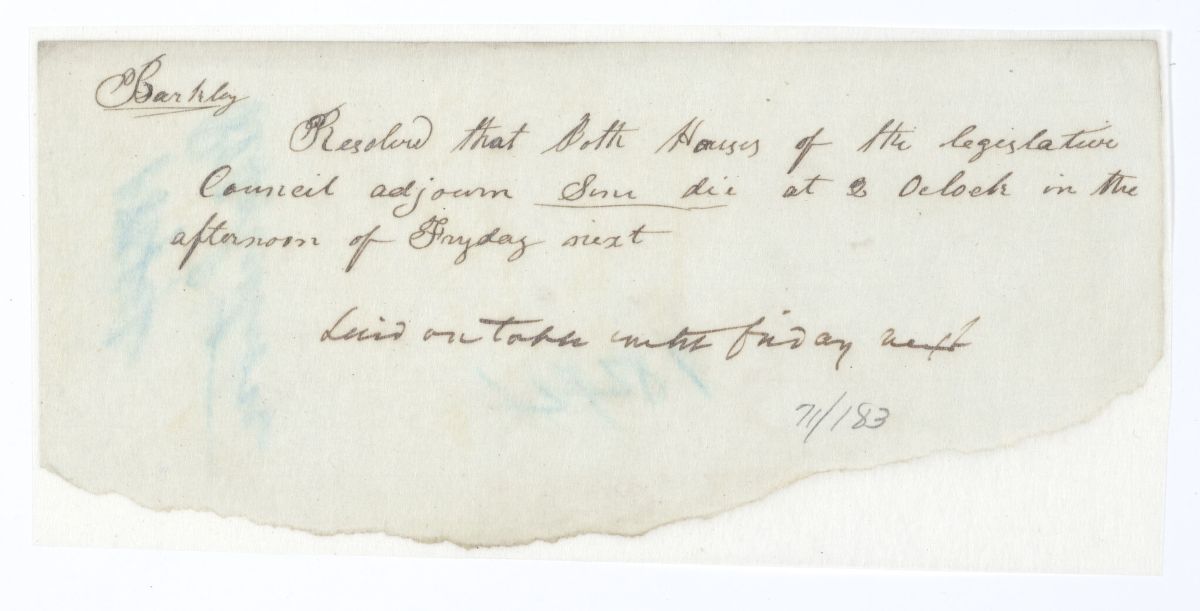 Barkley
Resolved that Both Houses of the legislative
Council adjourn Sine die at 2 Oclock in the
afternoon of Fryday next
Laid on table until friday next
71/183